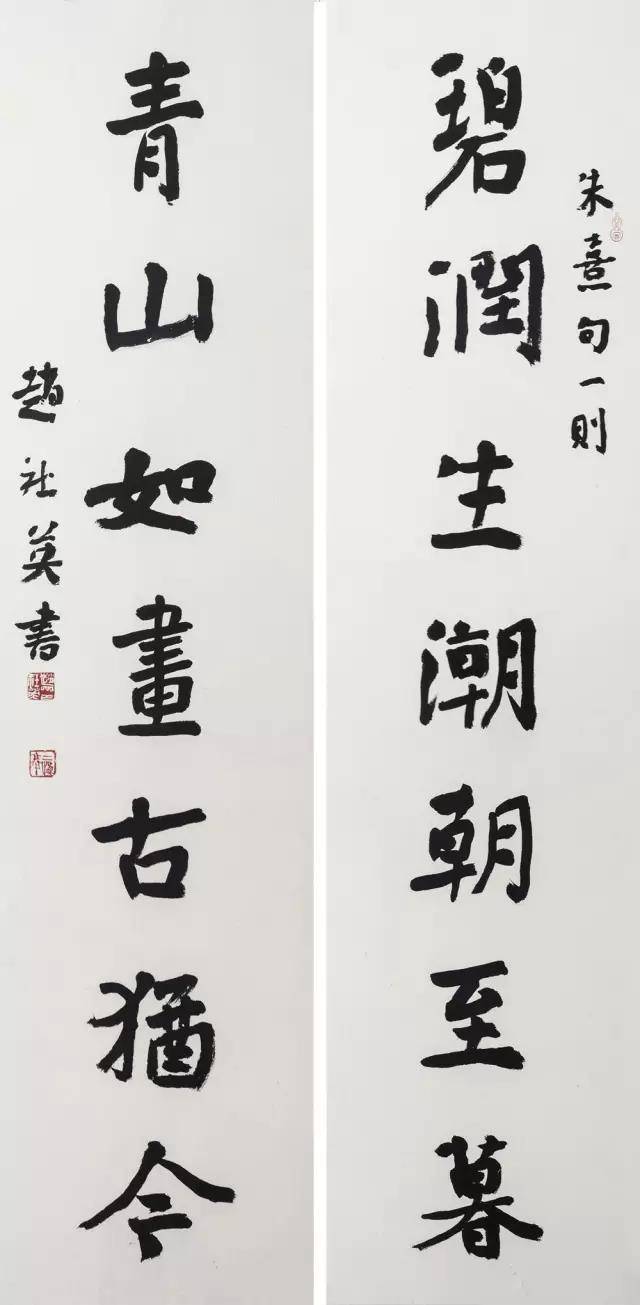 朱熹句一則
碧潤生潮朝至暮
青山如畫古猶今
趙社英書